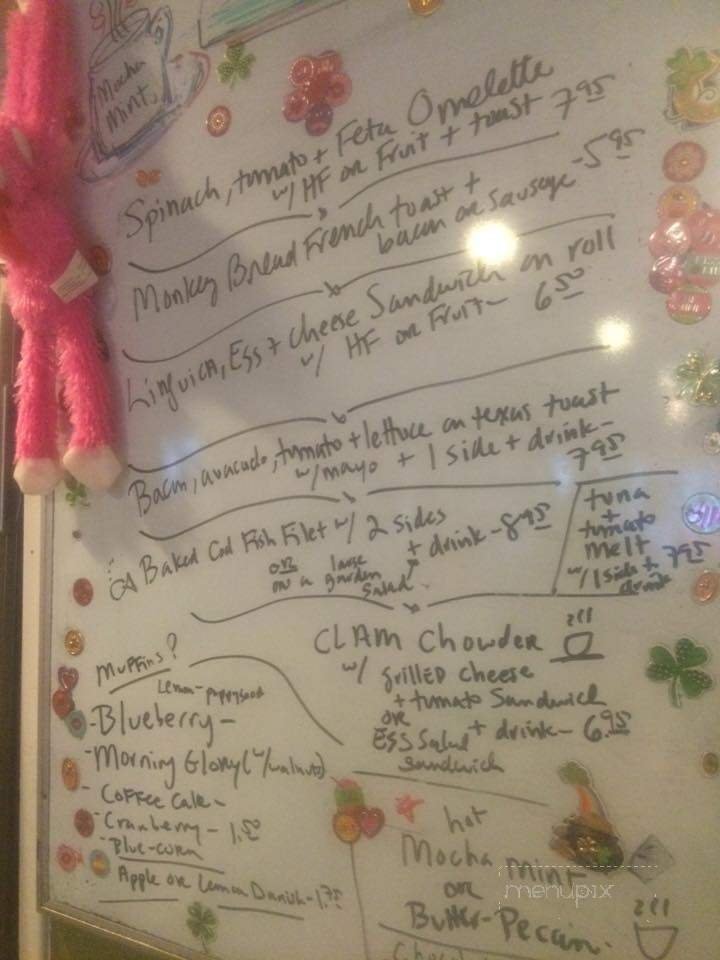 Mocha
Mint
Spinach, tomato + Feta Omelette
w/ HF or Fruit + toast 7.95
Monkey Bread French toast +
bacon or sausage - 5.95
Linguica, Egg + Cheese Sandwich on roll
w/ HF or Fruit - 6.50
Bacon, avacado, tomato + lettuce on texas toast
w/mayo + 1 side + drink -
7.95
Baked Cod Fish Filet w/ 2 sides
or on a large garden salad + drink - 8.95
tuna
+
tomato
melt
w/ 1 side + 7.95
drink
CLAM Chowder
w/ grilled cheese
+ tomato Sandwich
or
Egg Salad + drink - 6.95
sandwich
Muffins?
Lemon-poppyseed
- Blueberry -
- Morning Glory (w/walnuts)
- Coffee Cake -
- Cranberry - 1.50
- Blue-corn
Apple or Lemon Danish - 1.75
hot
Mocha Mint
or
Butter-Pecan
menupix